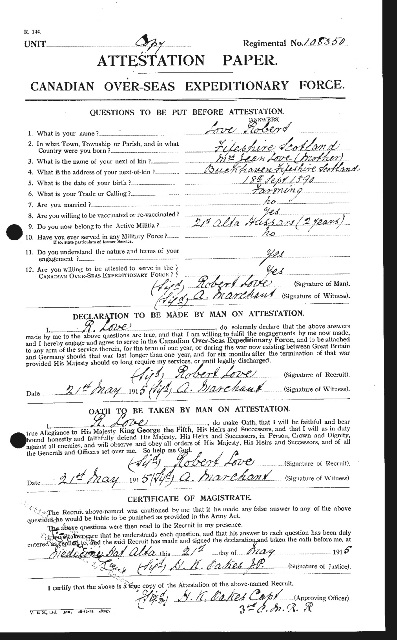 Copy
UNIT Regimental No. 108350
ATTESTATION PAPER.
CANADIAN OVER-SEAS EXPEDITIONARY FORCE.
QUESTIONS TO BE PUT BEFORE ATTESTATION.
ANSWERS.
1. What is your name? Love Robert
2. In what Town, Township or Parish, and in what
Country were you born? Fifeshire Scotland
3. What is the name of your next-of-kin? Love (Mother)
4. What is the address of your next-of-kin? Buckhaven Fifeshire Scotland
5. What is the date of your birth? Sept 1890
6. What is your Trade or Calling? Farming
7. Are you married? no
8. Are you willing to be vaccinated or re-vaccinated? Yes
9. Do you now belong to the Active Militia? 21st Alta Hussars (2 years)
10. Have you ever served in any Military Force? no
If so, state particulars of former Service.
11. Do you understand the nature and terms of
your engagement? Yes
12. Are you willing to be attested to serve in the
CANADIAN OVER-SEAS EXPEDITIONARY FORCE? Yes
(Sgd) Robert Love (Signature of Man).
(Sgd) A. Marchant (Signature of Witness).
DECLARATION TO BE MADE BY MAN ON ATTESTATION.
I, R. Love, do solemnly declare that the above answers
made by me to the above questions are true, and that I am willing to fulfil the engagements by me now made,
and I hereby engage and agree to serve in the Canadian Over-Seas Expeditionary Force, and to be attached
to any arm of the service therein, for the term of one year, or during the war now existing between Great Britain
and Germany should that war last longer than one year, and for six months after the termination of that war
provided His Majesty should so long require my services, or until legally discharged.
(Sgd) Robert Love (Signature of Recruit).
Date 21st May 1915 (Sgd) A. Marchant (Signature of Witness).
OATH TO BE TAKEN BY MAN ON ATTESTATION.
I, R. Love, do make Oath, that I will be faithful and bear
true Allegiance to His Majesty King George the Fifth, His Heirs and Successors, and that I will as in duty
bound honestly and faithfully defend His Majesty, His Heirs and Successors, in Person, Crown and Dignity,
against all enemies, and will observe and obey all orders of His Majesty, His Heirs and Successors, and of all
the Generals and Officers set over me. So help me God.
(Sgd) Robert Love (Signature of Recruit).
Date 21st May 1915 (Sgd) A. Marchant (Signature of Witness).
CERTIFICATE OF MAGISTRATE.
The Recruit above-named was cautioned by me that if he made any false answer to any of the above
questions he would be liable to be punished as provided in the Army Act.
The above questions were then read to the Recruit in my presence.
I have taken care that he understands each question, and that his answer to each question has been duly
entered as replied to, and the said Recruit has made and signed the declaration and taken the oath before me, at
Medicine Hat Alta this 21st day of May 1915
(Sgd) H. K. Oakes J.P. (Signature of Justice).
I certify that the above is a true copy of the Attestation of the above-named Recruit.
(Sgd) H. K. Oakes Capt (Approving Officer)
3rd C. M. R.